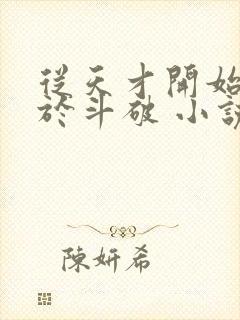 從天才開始
於斗破 小說
陳妍希